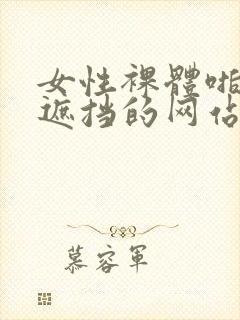 女性裸體啪
遮挡的网佔
慕容軍